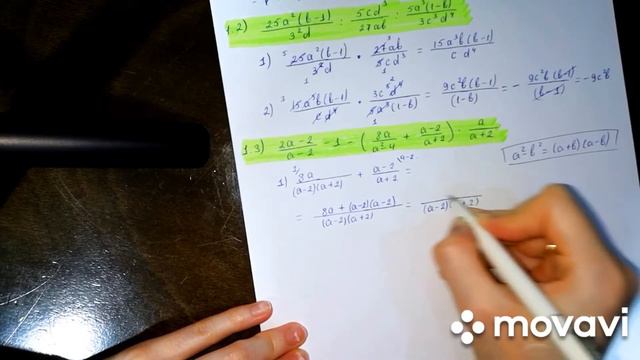 1.2) 25a²(b-1)/3²d : 5cd³/27ab : 5a³(1-b)/3c³d⁴
1) ⁵25a²(b-1)/3²d · 27³ab/5cd³ = 15a³b(b-1)/c d⁴
2) ³15a³b(b-1)/c d⁴ · 3c³d⁴/5a³(1-b) = 9c²b(b-1)/(1-b) = - 9c²b(b-1)/(b-1) = -9c²b
1.3) 2a-2/a-2 - 1 - (8a/a²-4 + a-2/a+2) : a/a+2
a²-b² = (a+b)(a-b)
1) 8a/(a-2)(a+2) + a-2/a+2 \a-2 =
= 8a+(a-2)(a-2)/(a-2)(a+2) = /(a-2)( +2)
movavi